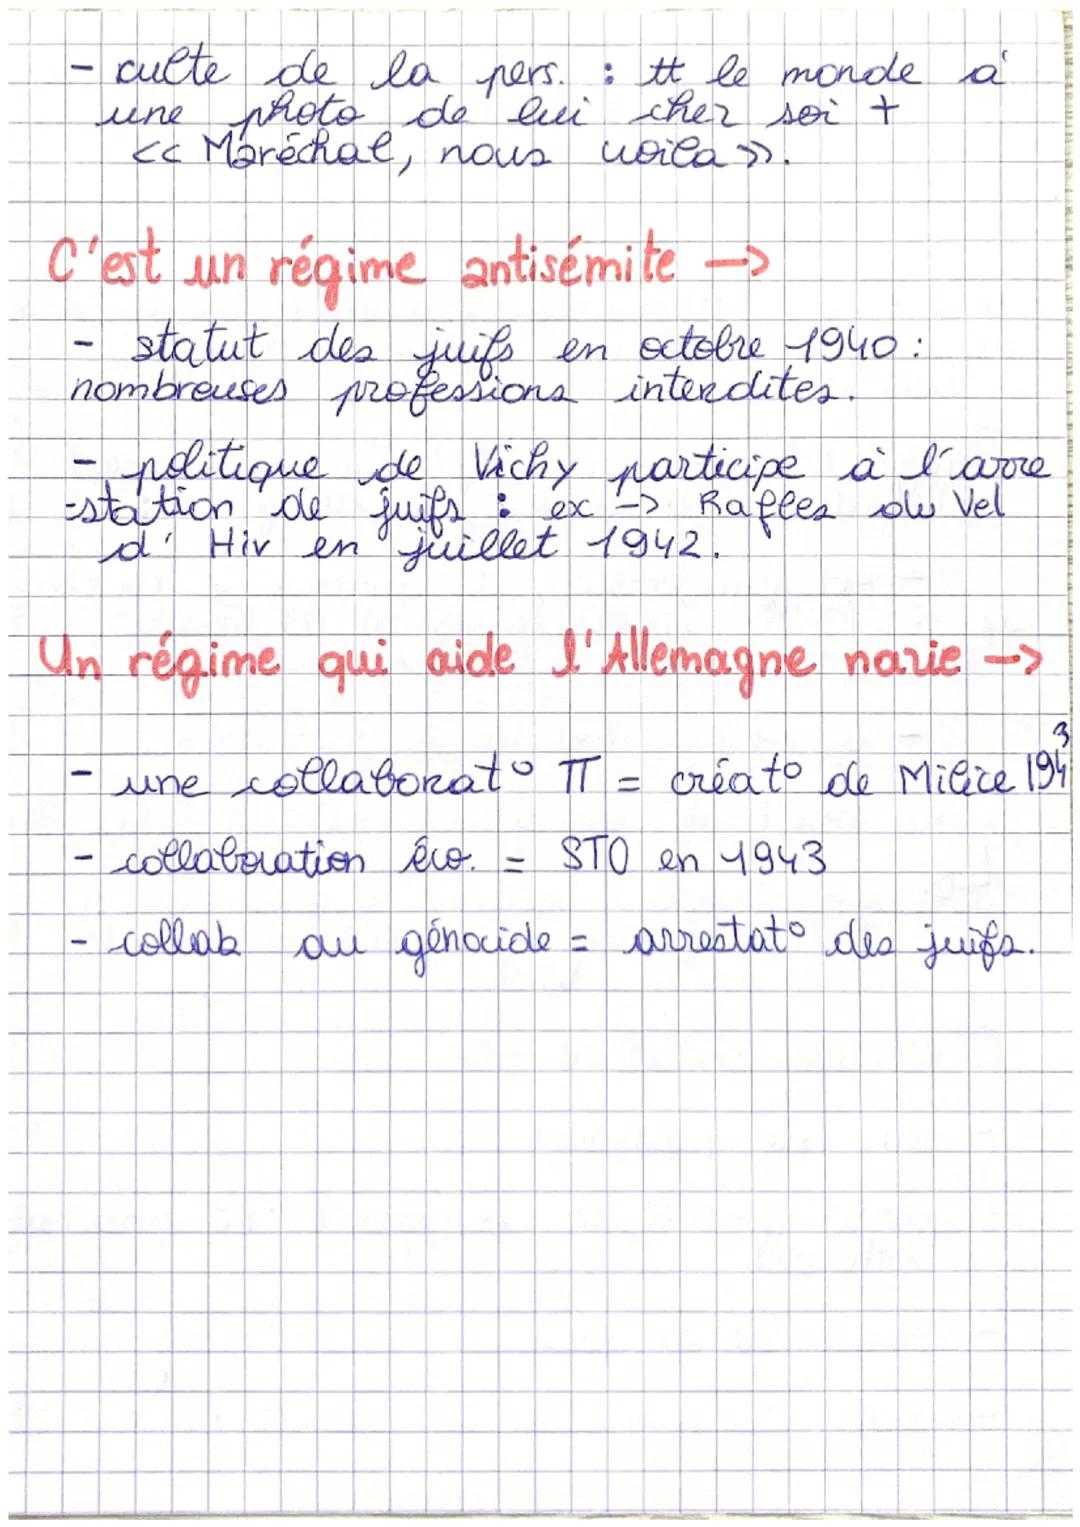 - culte de la pers. : tt le monde a
une photo de lui chez soi +
<< Maréchal, nous voilà >>.
C'est un régime antisémite -->
- statut des juifs en octobre 1940 :
nombreuses professions interdites.
- politique de Vichy participe à l'arre
=station de juifs : ex -> Rafles du Vel
d' Hiv en juillet 1942.
Un régime qui aide l'Allemagne nazie -->
- une collaborat° π = créat° de Milice 1943
- collaboration éco. = STO en 1943
- collab au génocide = arrestat° des juifs.